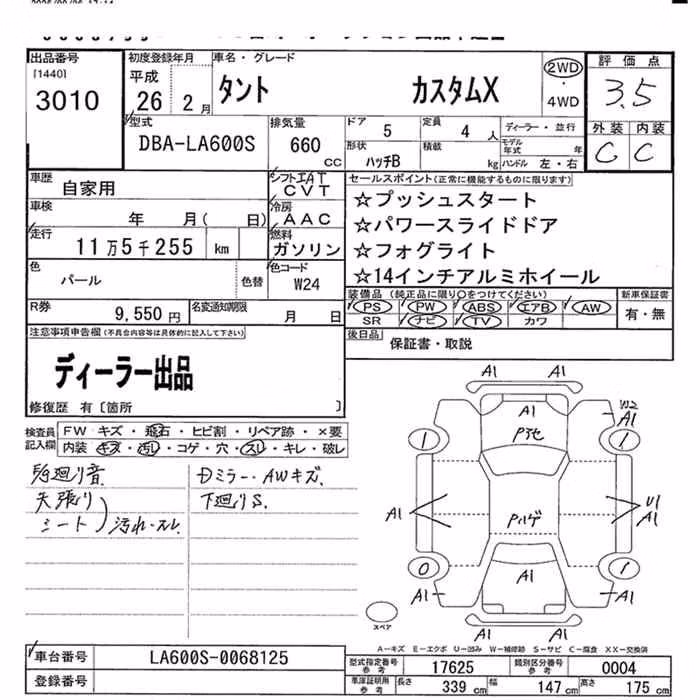 出品番号
[1440]
3010
初度登録年月
平成
26年2月
車名・グレード
タント カスタムX
2WD
・
4WD
評価点
3.5
外装 内装
C C
型式
DBA-LA600S
排気量
660
CC
ドア 5
定員 4 人
ディーラー・並行
形状 ハッチB
積載 kg
モデル年式 年
ハンドル 左・右
車歴 自家用
シフト IAT
CVT
車検 年 月( 日)
冷房
AAC
走行 11万5千255 km
燃料
ガソリン
色 パール
色替
色コード
W24
R券 9,550円
名変通知期限
月 日
セールスポイント(正常に機能するものに限ります)
☆プッシュスタート
☆パワースライドドア
☆フォグライト
☆14インチアルミホイール
装備品(純正品に限り○をつけてください)
PS PW ABS エアB AW
SR ナビ TV カワ
新車保証書
有・無
後日品
保証書・取説
注意事項申告欄(不具合内容等は具体的に記入して下さい)
ディーラー出品
修復歴 有〔箇所 〕
検査員
記入欄
FW キズ・飛石・ヒビ割・リペア跡・×要
内装 キズ・汚れ・コゲ・穴・スレ・キレ・破レ
廻り音
天張り
シート
汚れ・スレ
Dミラー・AWキズ.
下廻りS.
A1 A1
A1
W2
A1
1 1
A1
U1
A1
0 1
A1
A1 A1
A1 A1
スペア
A-キズ E-エクボ U-凹み W-補修跡 S-サビ C-腐食 XX-交換済
車台番号 LA600S-0068125
登録番号
型式指定番号
参考
17625
類別区分番号
参考
0004
車庫証明用
参考
長さ 339 cm 幅 147 cm 高さ 175 cm